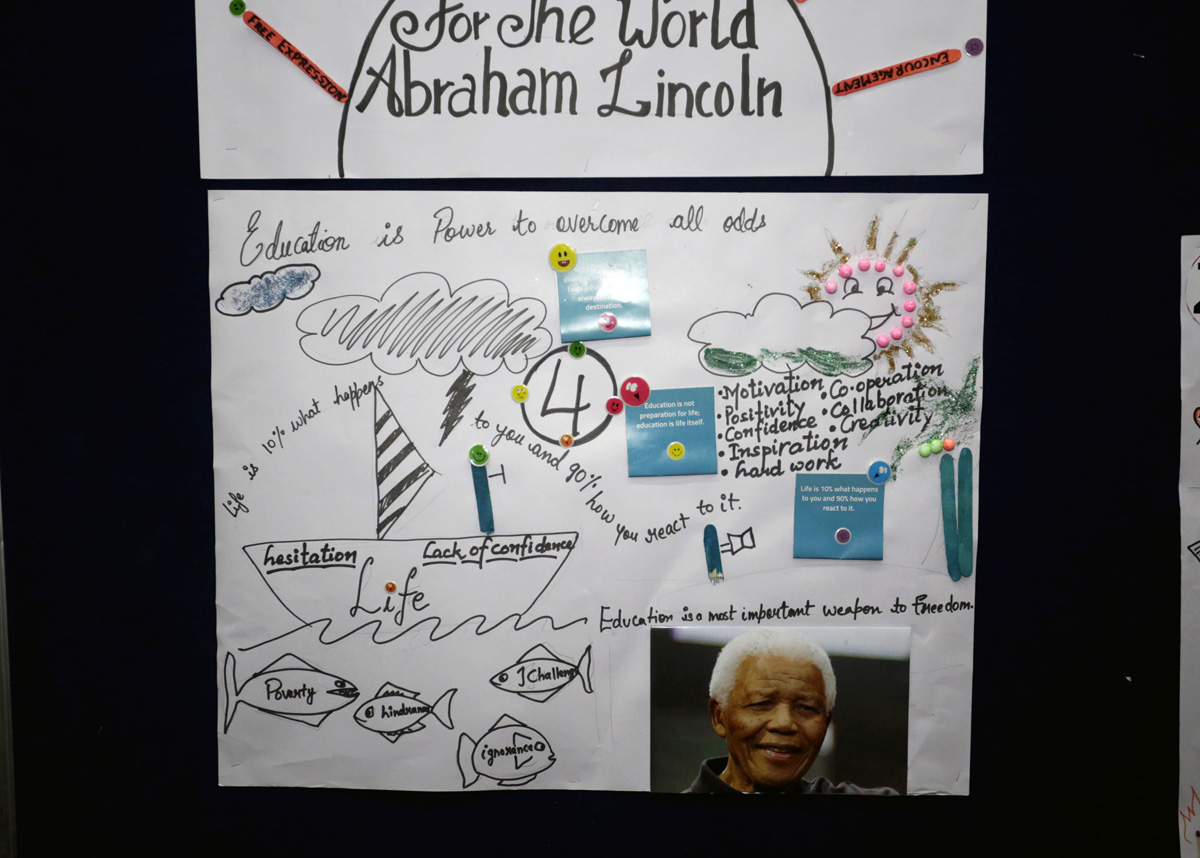 For The World
Abraham Lincoln
FREE EXPRESSION
ENCOURAGEMENT
Education is Power to overcome all odds
always
destination.
4
Life is 10% what happens
to you and 90% how you react to it.
Education is not
preparation for life;
education is life itself.
• Motivation
• Positivity
• Confidence
• Inspiration
• hard work
• Co-operation
• Collaboration
• Creativity
Life is 10% what happens
to you and 90% how you
react to it.
hesitation
Lack of confidence
Life
Education is a most important weapon to Freedom.
Poverty
hindrance
Challeng
ignorance